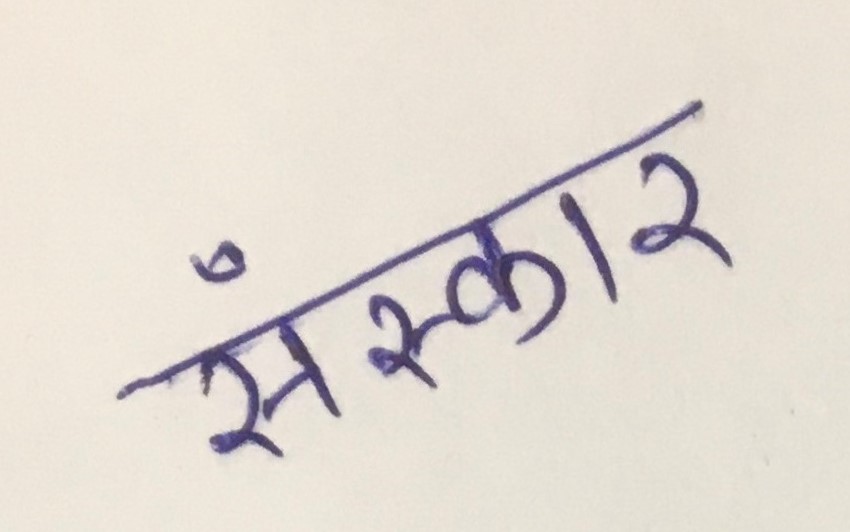 सँस्कार